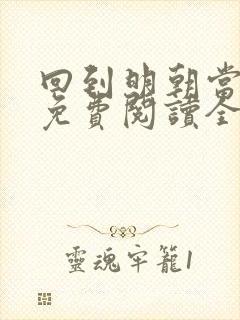 回到明朝當
免費閱讀全
靈魂牢籠1